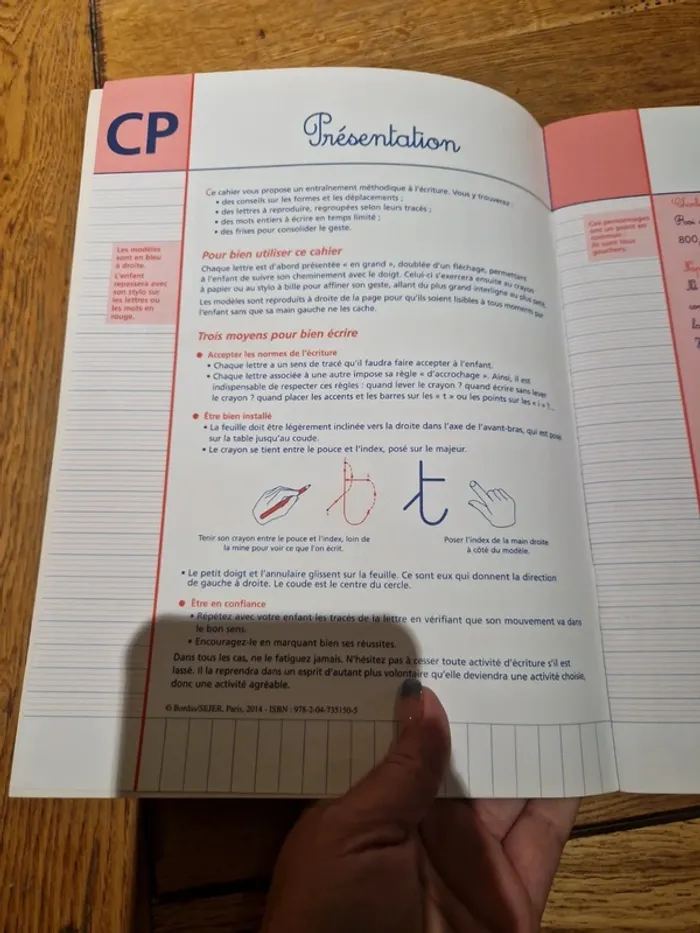 CP
Présentation
Ce cahier vous propose un entraînement méthodique à l'écriture. Vous y trouverez :
• des conseils sur les formes et les déplacements ;
• des lettres à reproduire, regroupées selon leurs tracés ;
• des mots entiers à écrire en temps limité ;
• des frises pour consolider le geste.
Les modèles
sont en bleu
à droite.
L'enfant
repassera avec
son stylo sur
les lettres ou
les mots en
rouge.
Pour bien utiliser ce cahier
Chaque lettre est d'abord présentée « en grand », doublée d'un fléchage, permettant
à l'enfant de suivre son cheminement avec le doigt. Celui-ci s'exercera ensuite au crayon
à papier ou au stylo à bille pour affiner son geste, allant du plus grand interligne au plus petit.
Les modèles sont reproduits à droite de la page pour qu'ils soient lisibles à tous moments par
l'enfant sans que sa main gauche ne les cache.
Trois moyens pour bien écrire
● Accepter les normes de l'écriture
• Chaque lettre a un sens de tracé qu'il faudra faire accepter à l'enfant.
• Chaque lettre associée à une autre impose sa règle « d'accrochage ». Ainsi, il est
indispensable de respecter ces règles : quand lever le crayon ? quand écrire sans lever
le crayon ? quand placer les accents et les barres sur les « t » ou les points sur les « i » ?...
● Être bien installé
• La feuille doit être légèrement inclinée vers la droite dans l'axe de l'avant-bras, qui est posé
sur la table jusqu'au coude.
• Le crayon se tient entre le pouce et l'index, posé sur le majeur.
t t
Tenir son crayon entre le pouce et l'index, loin de
la mine pour voir ce que l'on écrit.
Poser l'index de la main droite
à côté du modèle.
• Le petit doigt et l'annulaire glissent sur la feuille. Ce sont eux qui donnent la direction
de gauche à droite. Le coude est le centre du cercle.
● Être en confiance
• Répétez avec votre enfant les tracés de la lettre en vérifiant que son mouvement va dans
le bon sens.
• Encouragez-le en marquant bien ses réussites.
Dans tous les cas, ne le fatiguez jamais. N'hésitez pas à cesser toute activité d'écriture s'il est
lassé. Il la reprendra dans un esprit d'autant plus volontaire qu'elle deviendra une activité choisie,
donc une activité agréable.
© Bordas/SEJER, Paris, 2014 - ISBN : 978-2-04-735150-5
Ces personnages
ont un point en
commun :
ils sont tous
gauchers.
800,